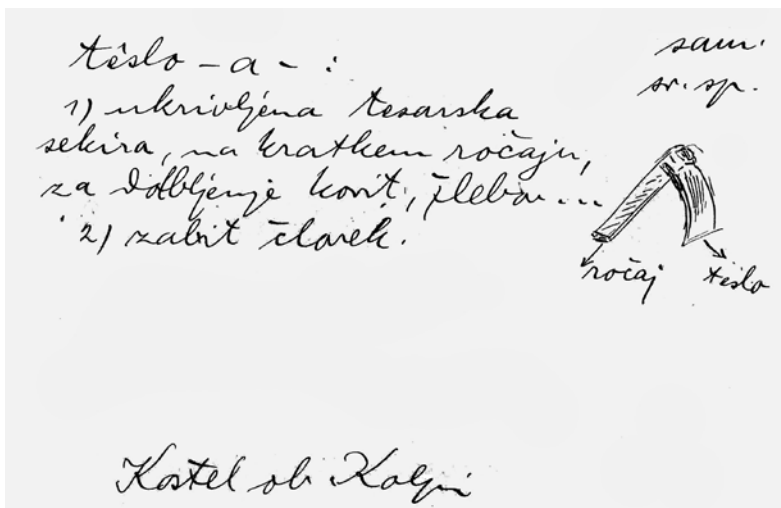 têslo – a – :
sam.
sr. sp.
1) ukrivljena tesarska
sekira, na kratkem ročaju,
za dolbljenje korit, žlebov...
2) zabit človek.
ročaj
têslo
Kostel ob Kolpi